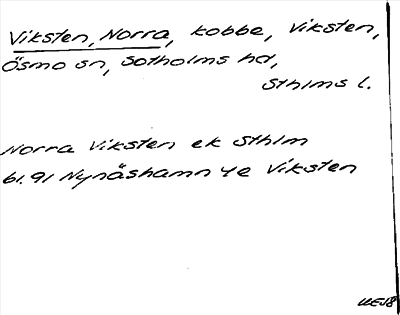 Viksten, Norra, kobbe, Viksten,
Ösmo sn, Sotholms hd,
Sthlms l.
Norra Viksten ek Sthlm
61.91 Nynäshamn 4e Viksten